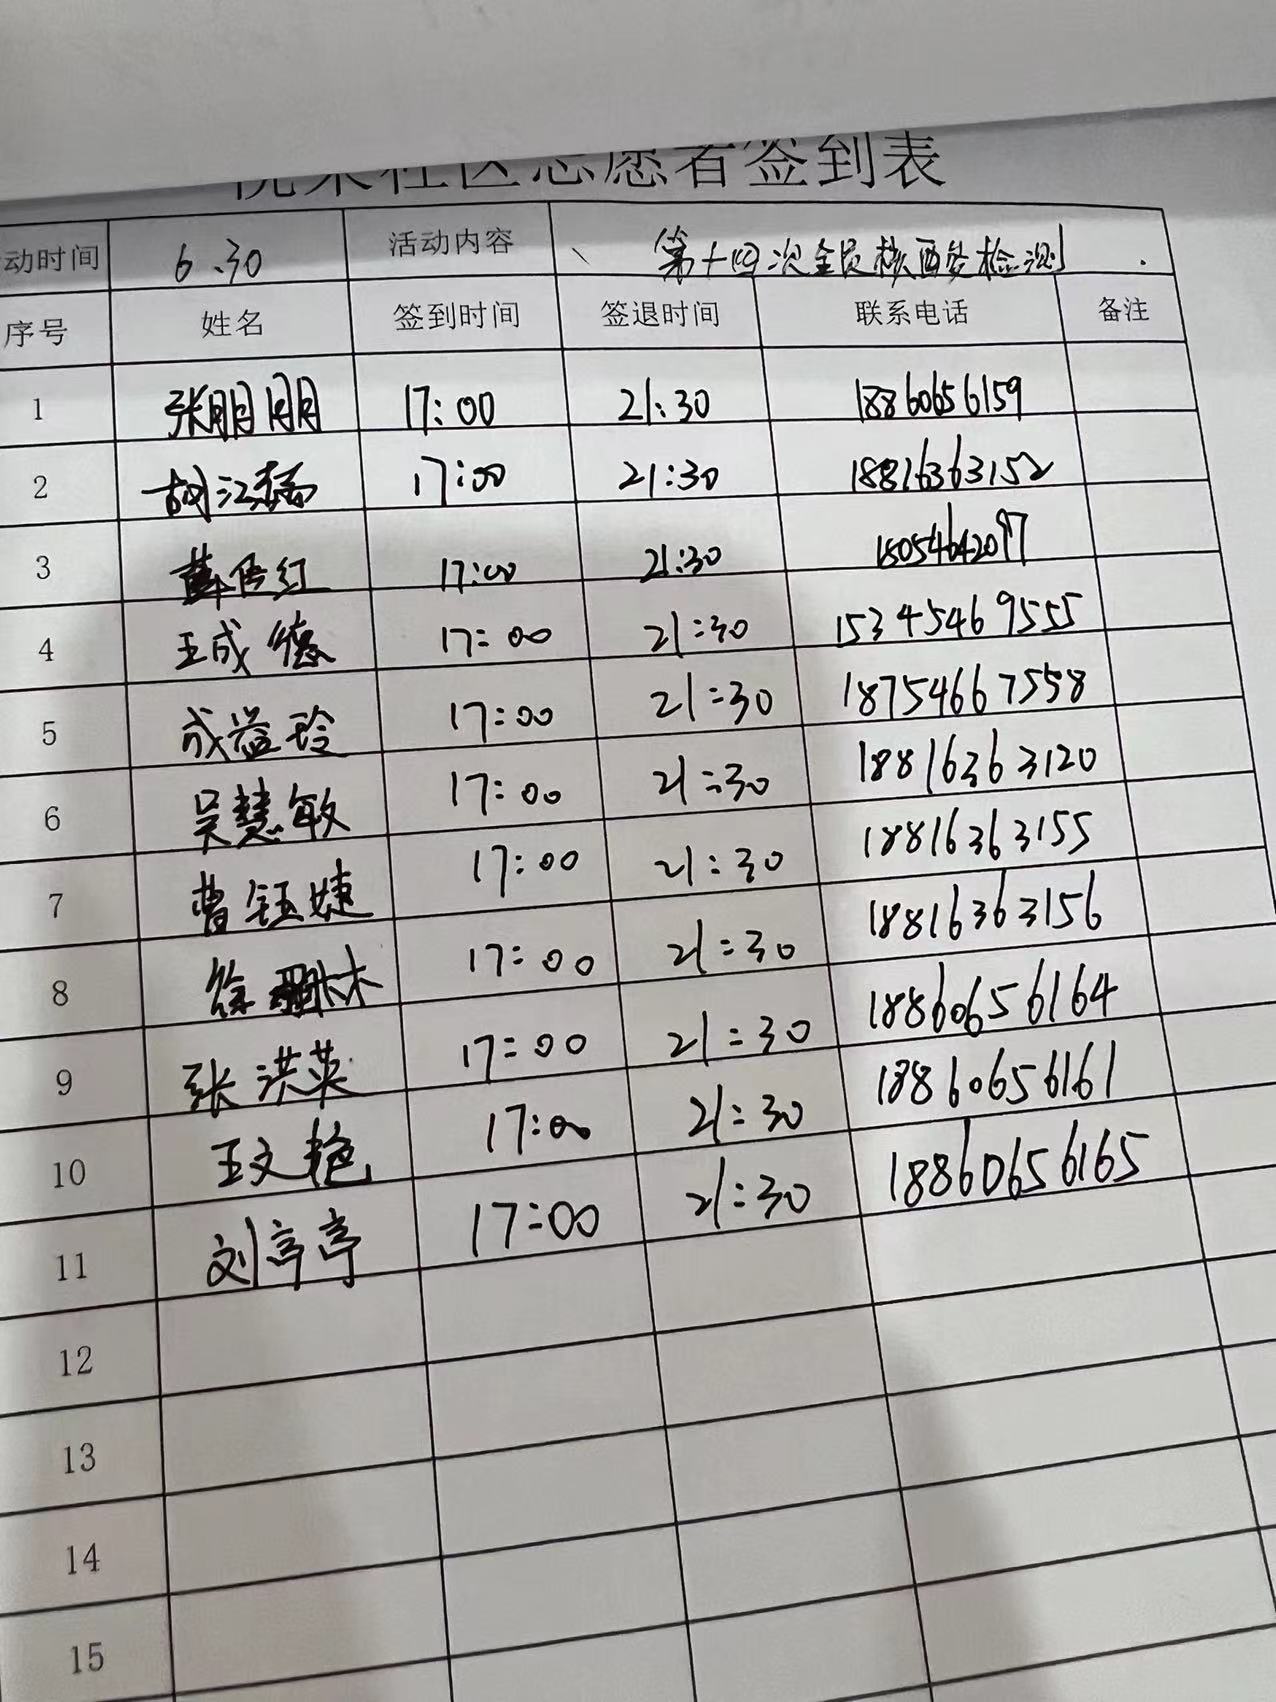 社区志愿者签到表
动时间 6.30 活动内容 第十四次全员核酸检测
序号 姓名 签到时间 签退时间 联系电话 备注
1 张朋朋 17:00 21:30 18860656159
2 胡江 17:00 21:30 18816363152
3 薛 红 17:00 21:30 18054642097
4 王成德 17:00 21:30 15345469555
5 成益玲 17:00 21:30 18754667558
6 吴慧敏 17:00 21:30 18816363120
7 曹钰婕 17:00 21:30 18816363155
8 徐 17:00 21:30 18816363156
9 张洪英 17:00 21:30 18860656164
10 王文艳 17:00 21:30 18860656161
11 刘亭亭 17:00 21:30 18860656165
12
13
14
15